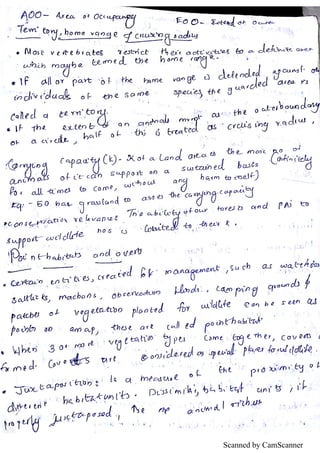 AOO - Area of Occupancy EOO - Extent of
Territory, home range & cruising radius
• Most vertebrates restrict their activities to a definite area
which maybe termed the home range.
• If all or part of the home range is defended against
individuals of the same species, the guarded area is
called a territory.
• If the extent of an animals as the outer boundary
of a circle, half of this is treated as cruising radius.
Carrying capacity (k) - K of a Land area is the max no of
animals of it can support on a sustained basis (definitely
for all times to come, without any harm to itself)
Eg - EO has grassland to asses the carrying capacity
• conservation relevance: The ability of our forests and PAs to
support wildlife has is limited to their k.
Point habitats and covers
• Certain entities, created by management, such as
saltlicks, machans, observation blinds. Camping grounds &
patches of vegetation planted for wildlife can be seen as
points on a map, these are called point habitat
• When 3 or more vegetation types come together, covers
formed. Coverts are considered as special places for wildlife.
• Juxtaposition: Is a measure of the proximity of
different habitat units. Dissimilar, habitat units, if
properly juxtaposed, the animal
Scanned by CamScanner